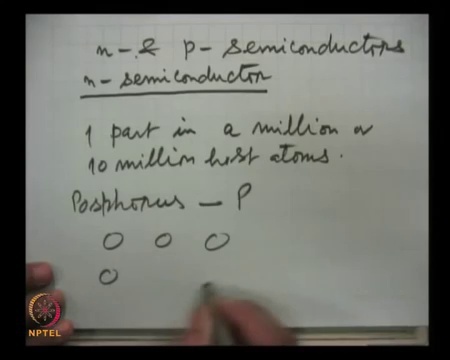 n- & p- semiconductors
n- semiconductor
1 part in a million or
10 million host atoms.
Posphorus — P
NPTEL